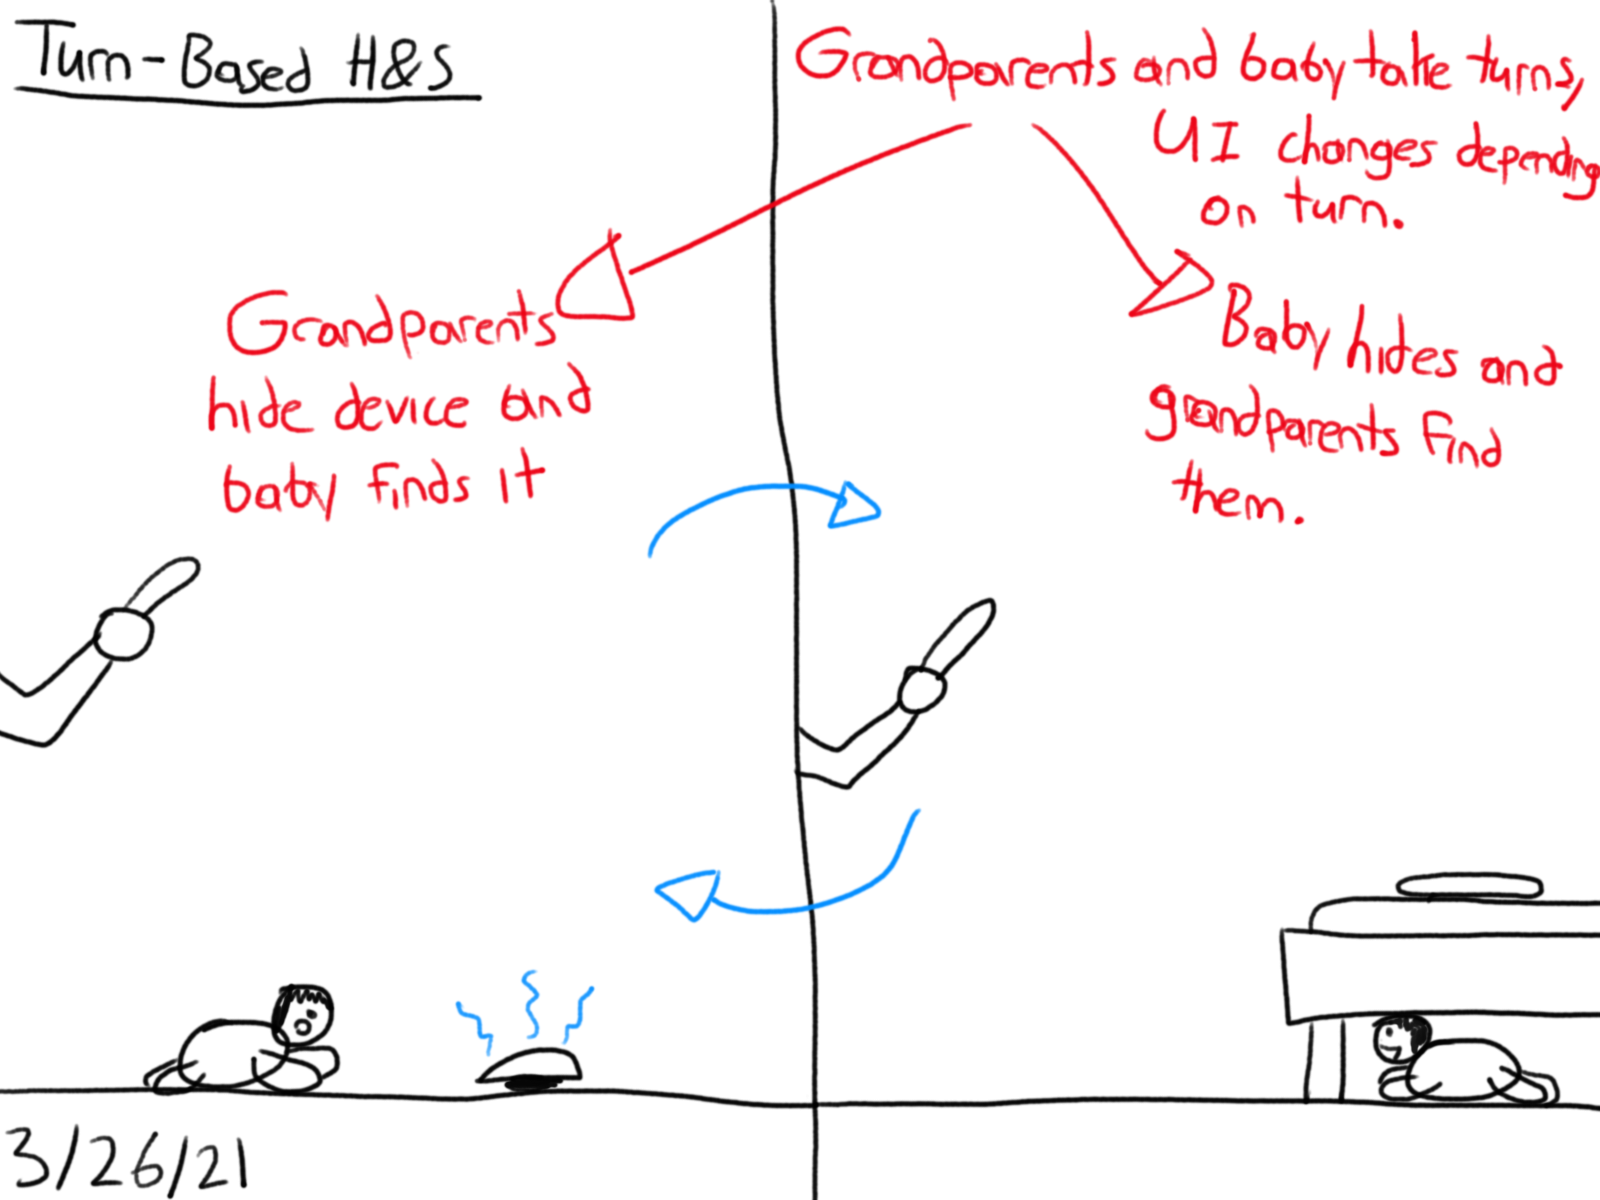 Turn-Based H&S
Grandparents and baby take turns,
UI changes depending
on turn.
Grandparents
hide device and
baby finds it
Baby hides and
grandparents find
them.
3/26/21